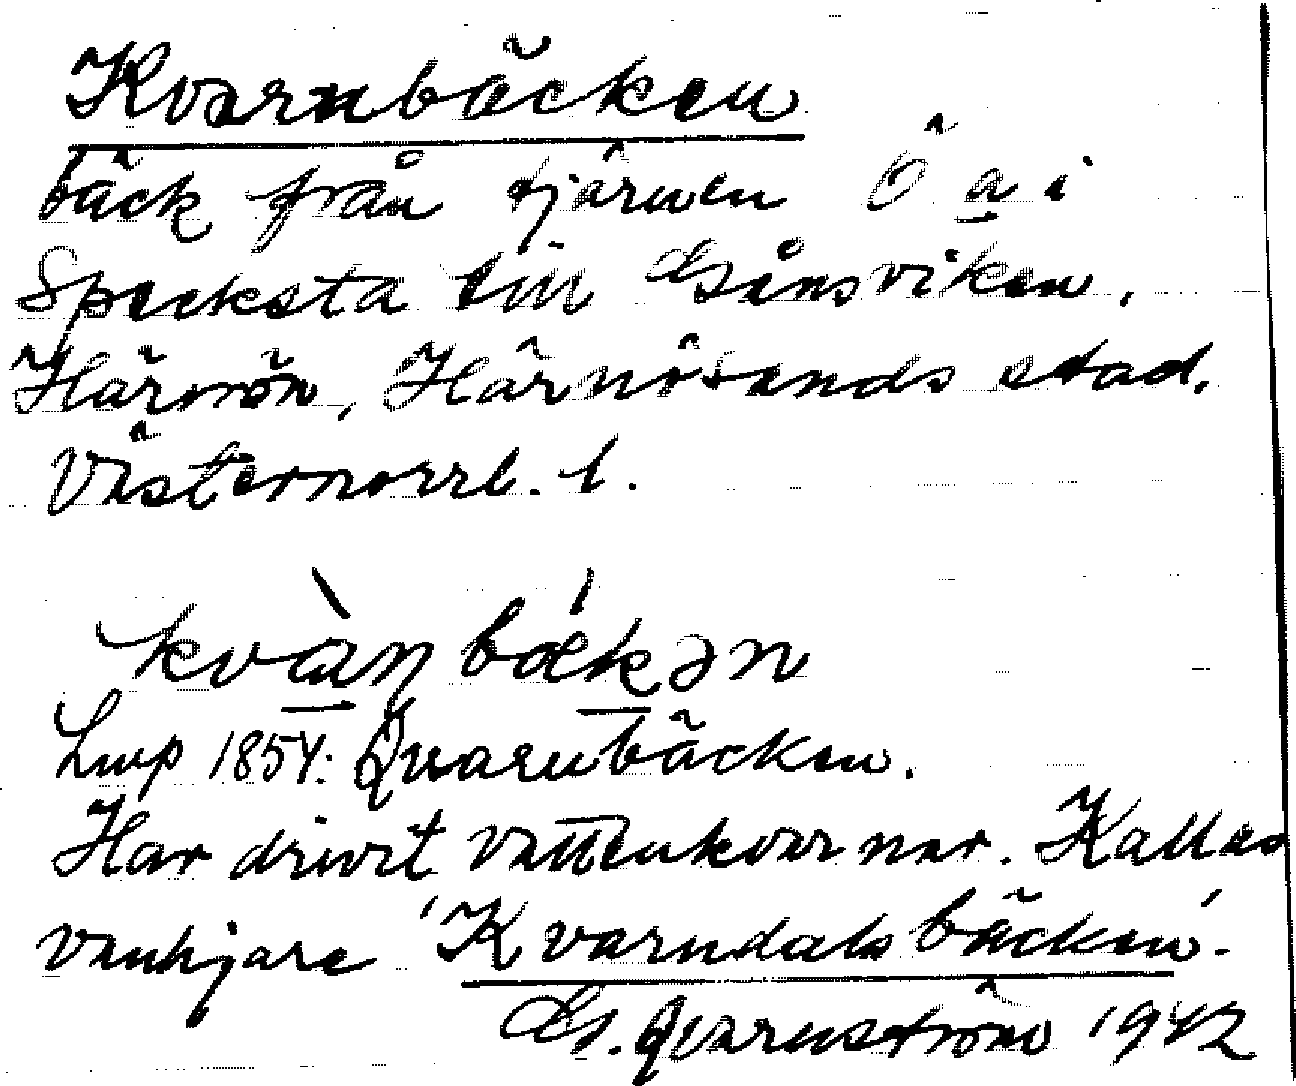 Kvarnbäcken
bäck från tjärnen Ö a i
Specksta till Gånsviken,
Härnön, Härnösands stad,
Västernorrl. l.
kvàn bǽkən
Lmp 1854: Quarnbäcken.
Har drivit vattenkvarnar. Kallas
vanligare 'Kvarndalsbäcken'.
G. Qvarnström 1942